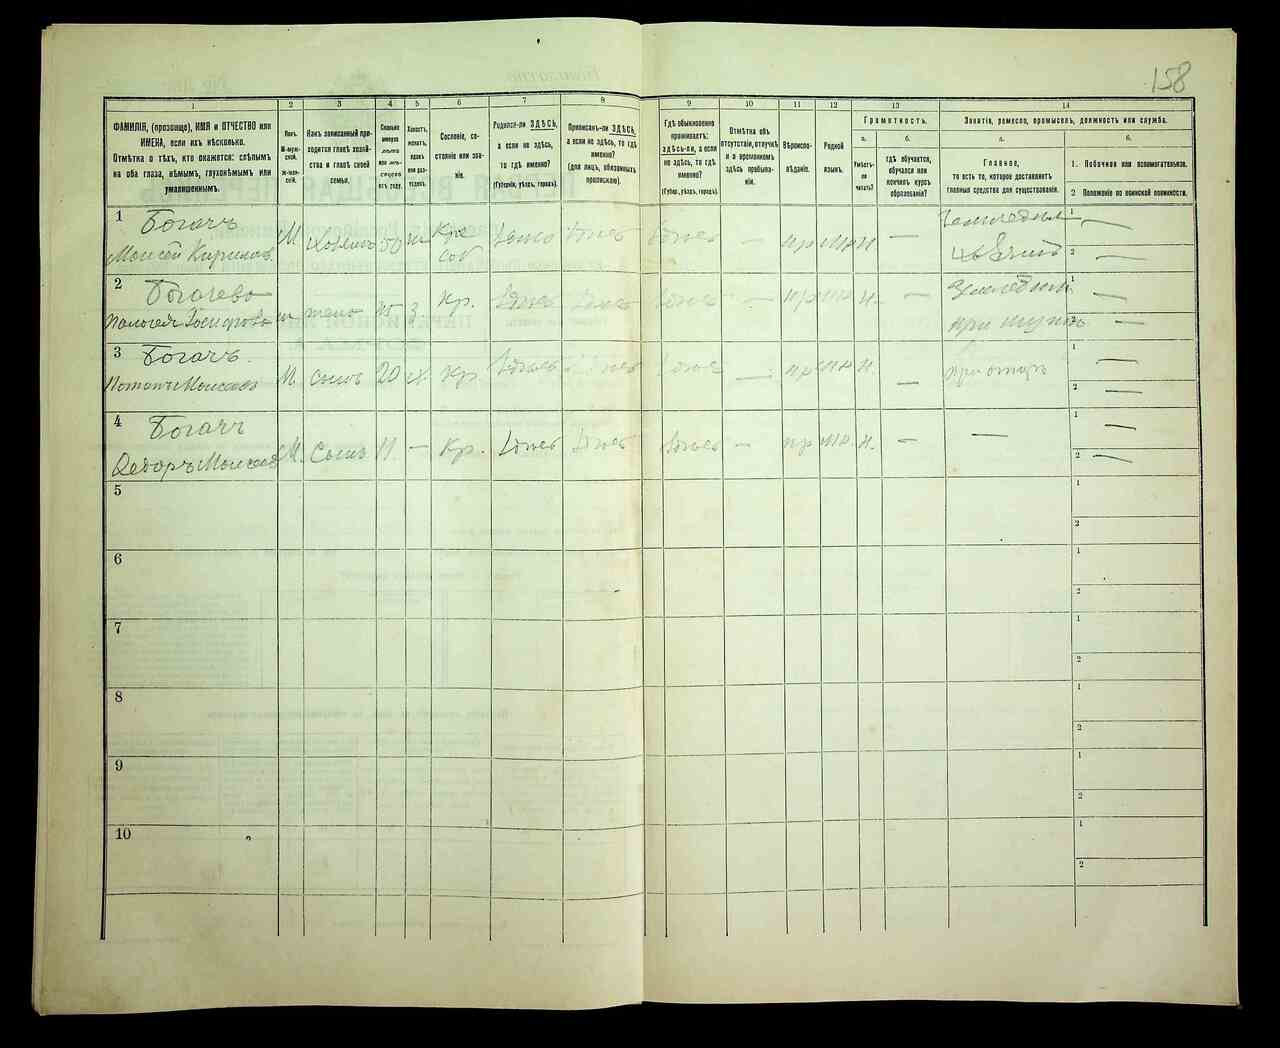 158
1
2
3
4
5
6
7
8
9
10
11
12
13
14
ФАМИЛІЯ, (прозвище), ИМЯ и ОТЧЕСТВО или
ИМЕНА, если ихъ нѣсколько.
Отмѣтка о тѣхъ, кто окажется: слѣпымъ
на оба глаза, нѣмымъ, глухонѣмымъ или
умалишеннымъ.
Полъ.
М-муж-
ской.
Ж-жен-
скій.
Какъ записанный при-
ходится главѣ хозяй-
ства и главѣ своей
семьи.
Сколько
минуло
лѣтъ
или мѣ-
сяцевъ
отъ роду.
Холостъ,
женатъ,
вдовъ
или раз-
веденъ.
Сословіе, со-
стояніе или зва-
ніе.
Родился-ли ЗДѢСЬ,
а если не здѣсь,
то гдѣ именно?
(Губернія, уѣздъ, городъ).
Приписанъ-ли ЗДѢСЬ,
а если не здѣсь, то гдѣ
именно?
(для лицъ, обязанныхъ
припискою).
Гдѣ обыкновенно
проживаетъ:
здѣсь-ли, а если
не здѣсь, то гдѣ
именно?
(Губер., уѣздъ, городъ).
Отмѣтка объ
отсутствіи, отлучкѣ
и о временномъ
здѣсь пребыва-
ніи.
Вѣроиспо-
вѣданіе.
Родной
языкъ.
Грамотность.
а.
б.
Умѣетъ-
ли
читать?
гдѣ обучается,
обучался или
кончилъ курсъ
образованія?
Занятіе, ремесло, промыселъ, должность или служба.
а.
б.
Главное,
то есть то, которое доставляетъ
главныя средства для существованія.
1. Побочное или вспомогательное.
2 Положеніе по воинской повинности.
1 Богачъ
Моисей Кирилов. М Хозяинъ 50 Кре здѣсь здѣсь здѣсь — пр мр н. — 1 —
соб 2 —
2 Богачева
жена 45 З кр. здѣсь здѣсь здѣсь — пр мр н. — 1 —
при мужѣ 2 —
3 Богачъ.
Потапъ Моисеевъ М. сынъ 20 Х кр. здѣсь здѣсь здѣсь — пр мр н. — при отцѣ 1 —
2 —
4 Богачъ
Федоръ Моисеев М. Сынъ 11 — кр. здѣсь здѣсь здѣсь — пр мр н. — — 1 —
2 —
5 1
2
6 1
2
7 1
2
8 1
2
9 1
2
10 1
2